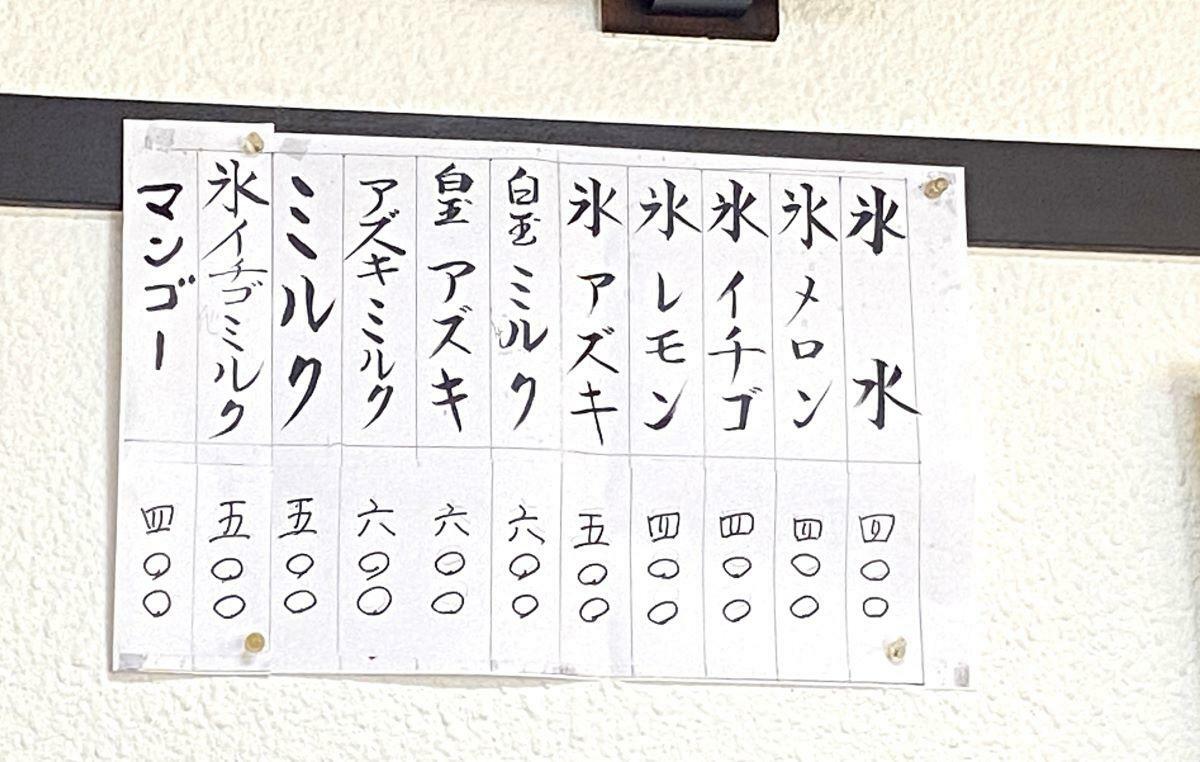 氷 水 四〇〇
氷 メロン 四〇〇
氷 イチゴ 四〇〇
氷 レモン 四〇〇
氷 アズキ 五〇〇
白玉 ミルク 六〇〇
白玉 アズキ 六〇〇
アズキミルク 六〇〇
ミルク 五〇〇
氷イチゴミルク 五〇〇
マンゴー 四〇〇